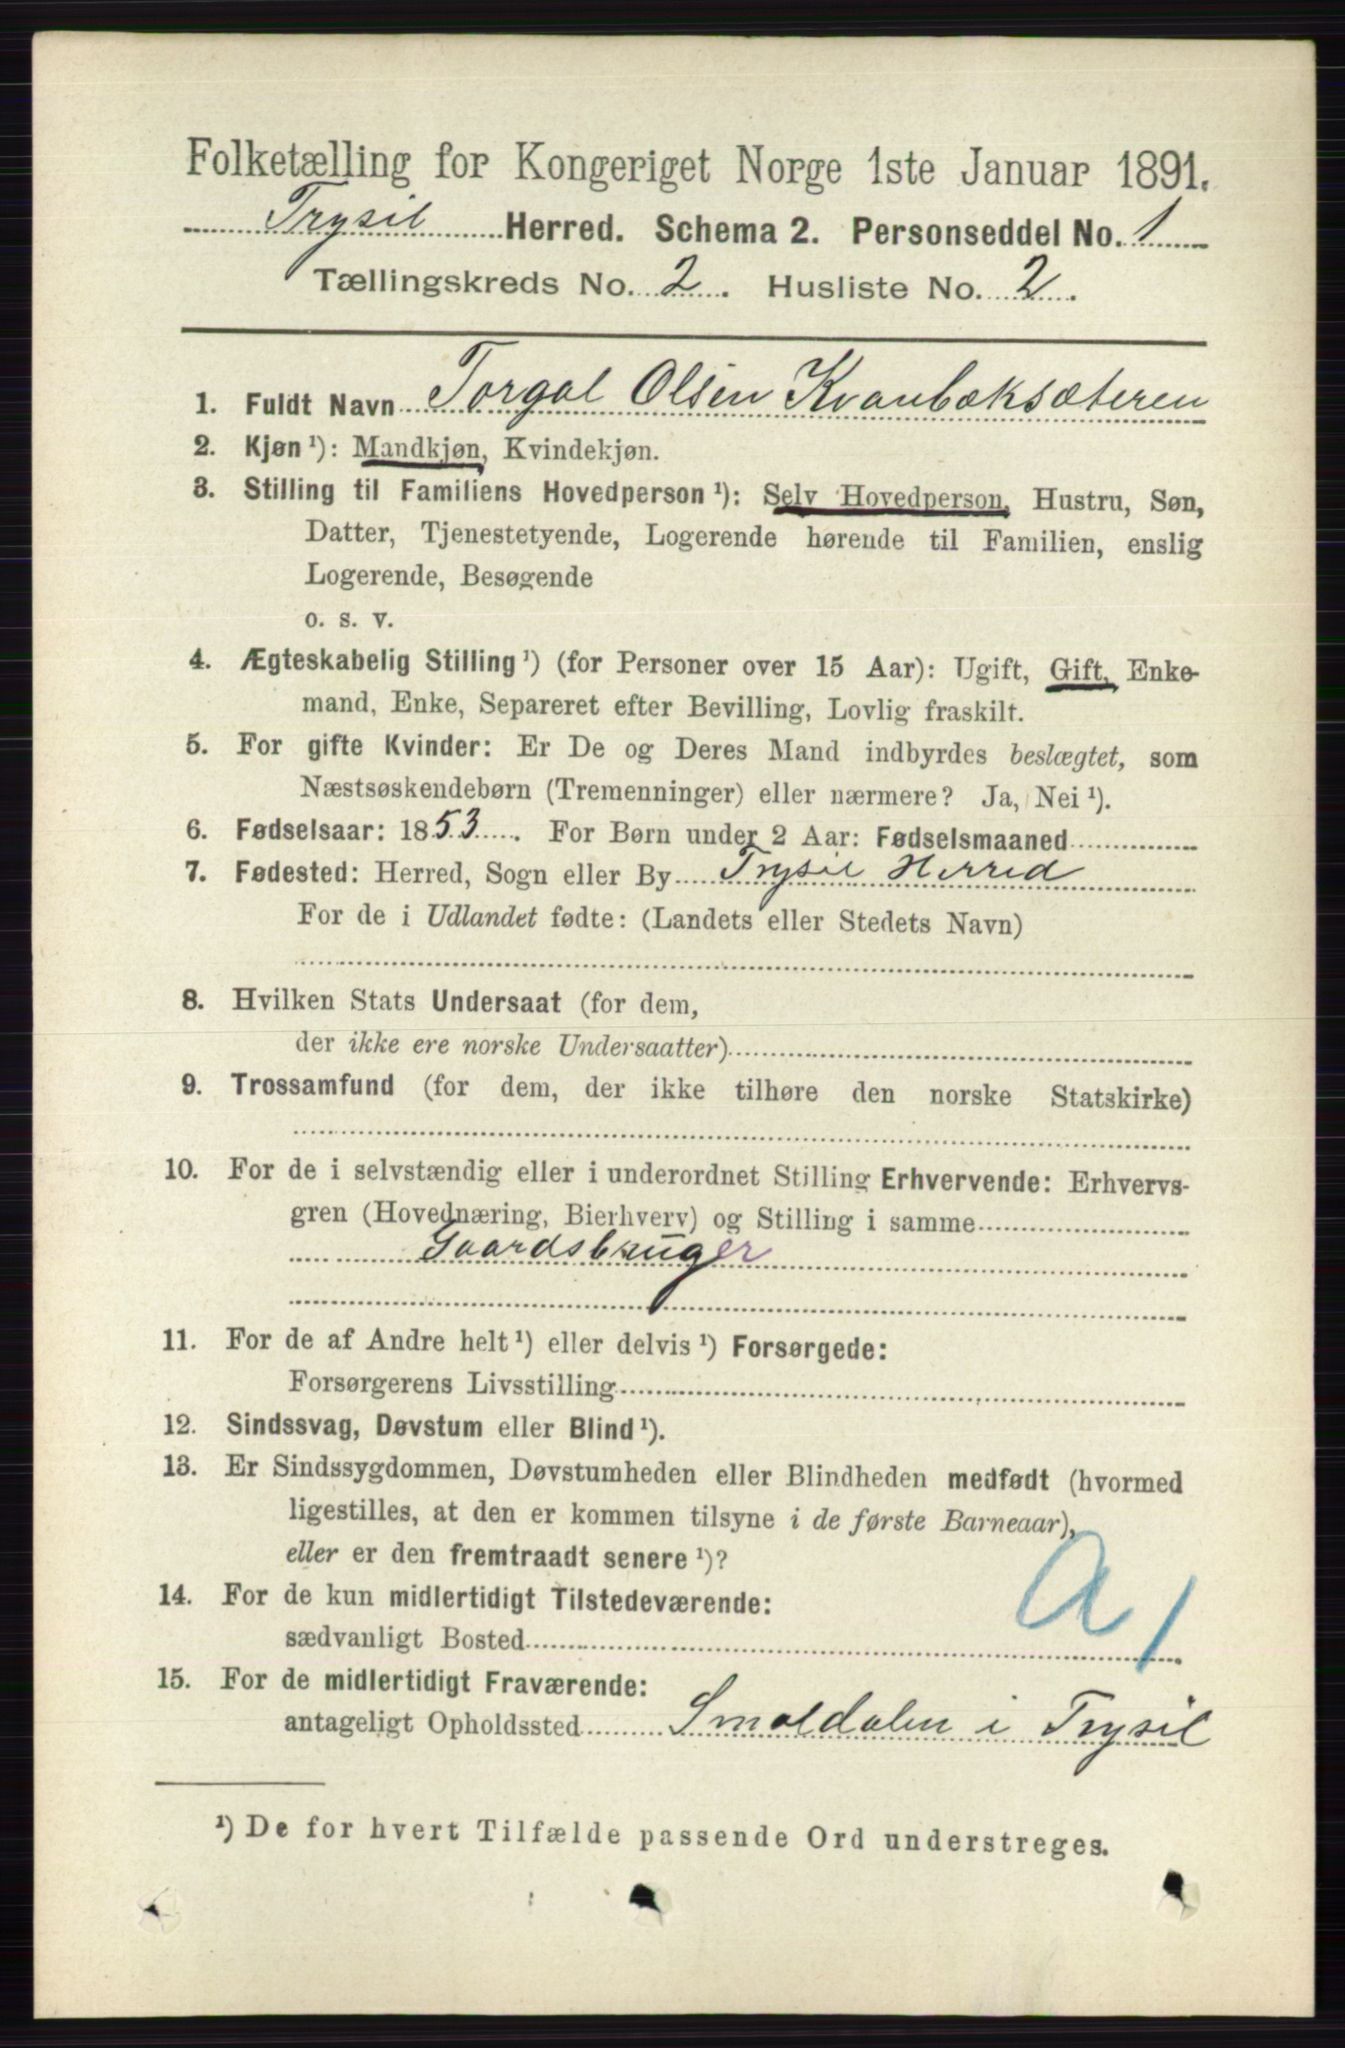 Folketælling for Kongeriget Norge 1ste Januar 1891.
Trysil Herred. Schema 2. Personseddel No. 1
Tællingskreds No. 2. Husliste No. 2.
1. Fuldt Navn Torgal Olsen Kvanbæksæteren
2. Kjøn ¹): Mandkjøn, Kvindekjøn.
3. Stilling til Familiens Hovedperson ¹): Selv Hovedperson, Hustru, Søn,
Datter, Tjenestetyende, Logerende hørende til Familien, enslig
Logerende, Besøgende
o. s. v.
4. Ægteskabelig Stilling ¹) (for Personer over 15 Aar): Ugift, Gift, Enke-
mand, Enke, Separeret efter Bevilling, Lovlig fraskilt.
5. For gifte Kvinder: Er De og Deres Mand indbyrdes beslægtet, som
Næstsøskendebørn (Tremenninger) eller nærmere? Ja, Nei ¹).
6. Fødselsaar: 1853. For Børn under 2 Aar: Fødselsmaaned
7. Fødested: Herred, Sogn eller By Trysil Herred
For de i Udlandet fødte: (Landets eller Stedets Navn)
8. Hvilken Stats Undersaat (for dem,
der ikke ere norske Undersaatter)
9. Trossamfund (for dem, der ikke tilhøre den norske Statskirke)
10. For de i selvstændig eller i underordnet Stilling Erhvervende: Erhvervs-
gren (Hovednæring, Bierhverv) og Stilling i samme
Gaardsbruger
11. For de af Andre helt ¹) eller delvis ¹) Forsørgede:
Forsørgerens Livsstilling
12. Sindssvag, Døvstum eller Blind ¹).
13. Er Sindssygdommen, Døvstumheden eller Blindheden medfødt (hvormed
ligestilles, at den er kommen tilsyne i de første Barneaar),
eller er den fremtraadt senere ¹)?
14. For de kun midlertidigt Tilstedeværende:
sædvanligt Bosted
A 1
15. For de midlertidigt Fraværende:
antageligt Opholdssted Smoldalen i Trysil
¹) De for hvert Tilfælde passende Ord understreges.